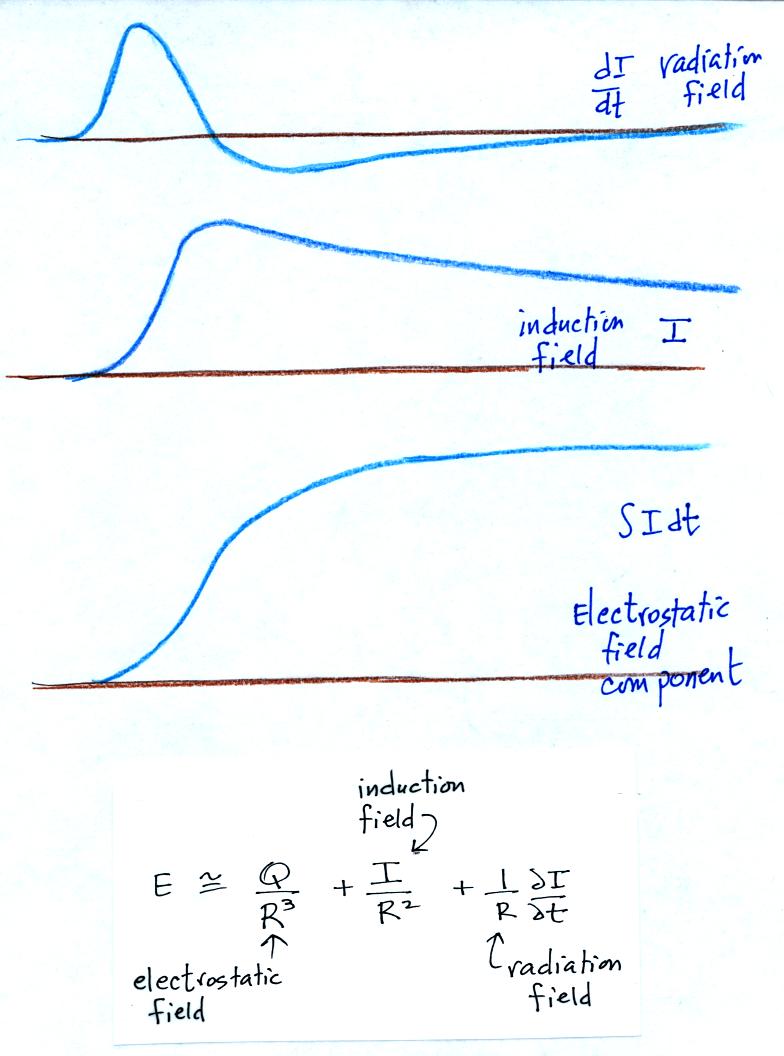 dI/dt radiation
field
induction I
field
∫Idt
Electrostatic
field
component
induction
field
E ≅ Q/R³ + I/R² + 1/R ∂I/∂t
electrostatic
field
radiation
field